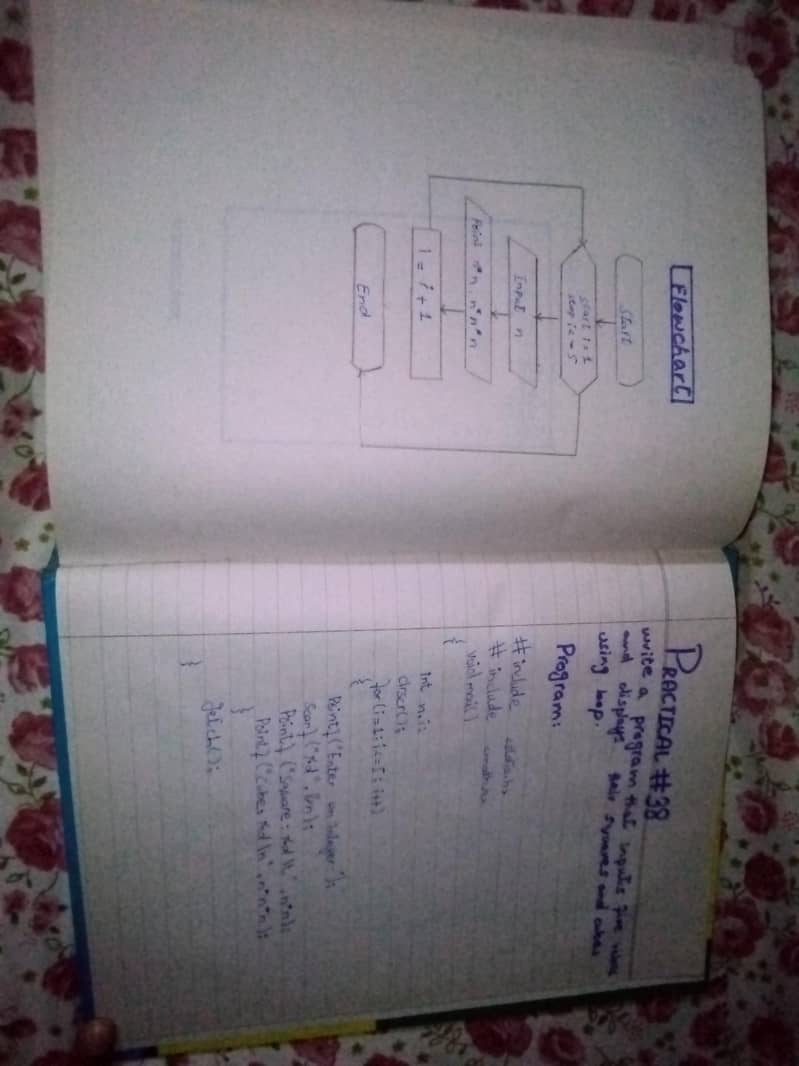 Flowchart
Start
Start i = 1
stop i <= 5
Input n
Print n*n, n*n*n
i = i + 1
End
PRACTICAL #38
write a program that inputs five values
and displays their squares and cubes
using loop.
Program:
# include
# include
void
{
int n,i;
clrscr();
for(i=1;i<=5;i++)
{
Printf("Enter an integer");
Scanf("%d",&n);
Printf("Square=%d \t", n*n);
Printf("Cube=%d \n", n*n*n);
}
getch();
}